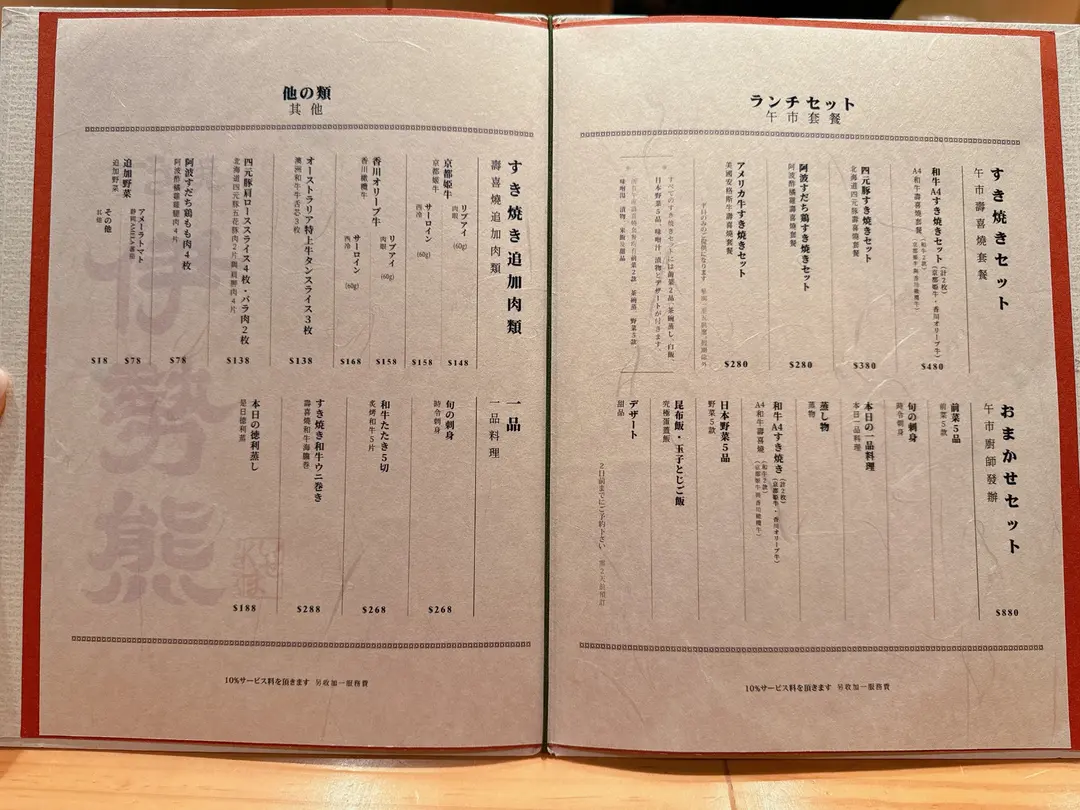 ランチセット
午市套餐
すき焼きセット
午市壽喜燒套餐
和牛A4すき焼きセット(計2枚)
(京都姫牛・香川オリーブ牛)
A4和牛壽喜燒套餐
$480
四元豚すき焼きセット
北海道四元豚壽喜燒套餐
$380
阿波すだち鶏すき焼きセット
阿波酢橘雞壽喜燒套餐
$280
アメリカ牛すき焼きセット
美國安格斯牛壽喜燒套餐
$280
おまかせセット
午市廚師發辦
$880
前菜5品
前菜5款
旬の刺身
時令刺身
本日の一品料理
本日一品料理
蒸し物
蒸物
和牛A4すき焼き(計2枚)
(京都姫牛・香川オリーブ牛)
A4和牛壽喜燒
日本野菜5品
野菜5款
昆布飯・玉子とじご飯
究極蛋蓋飯
デザート
甜品
2日前までにご予約下さい
10%サービス料を頂きます 另收加一服務費
他の類
其他
すき焼き追加肉類
壽喜燒追加肉類
京都姫牛
京都姬牛
リブアイ
肉眼
(60g)
$148
サーロイン
西冷
(60g)
$158
香川オリーブ牛
香川橄欖牛
リブアイ
肉眼
(60g)
$158
サーロイン
西冷
(60g)
$168
オーストラリア特上牛タンスライス3枚
澳洲和牛牛舌芯3枚
$138
四元豚肩ローススライス4枚・バラ肉2枚
$138
阿波すだち鶏もも肉4枚
阿波酢橘雞雞腿肉4片
$78
追加野菜
追加野菜
アメーラトマト
靜岡AMELA蕃茄
$78
その他
其他
$18
一品
一品料理
旬の刺身
時令刺身
$268
和牛たたき5切
炙烤和牛5片
$268
すき焼き和牛ウニ巻き
壽喜燒和牛海膽卷
$288
本日の徳利蒸し
是日德利蒸
$188
10%サービス料を頂きます 另收加一服務費